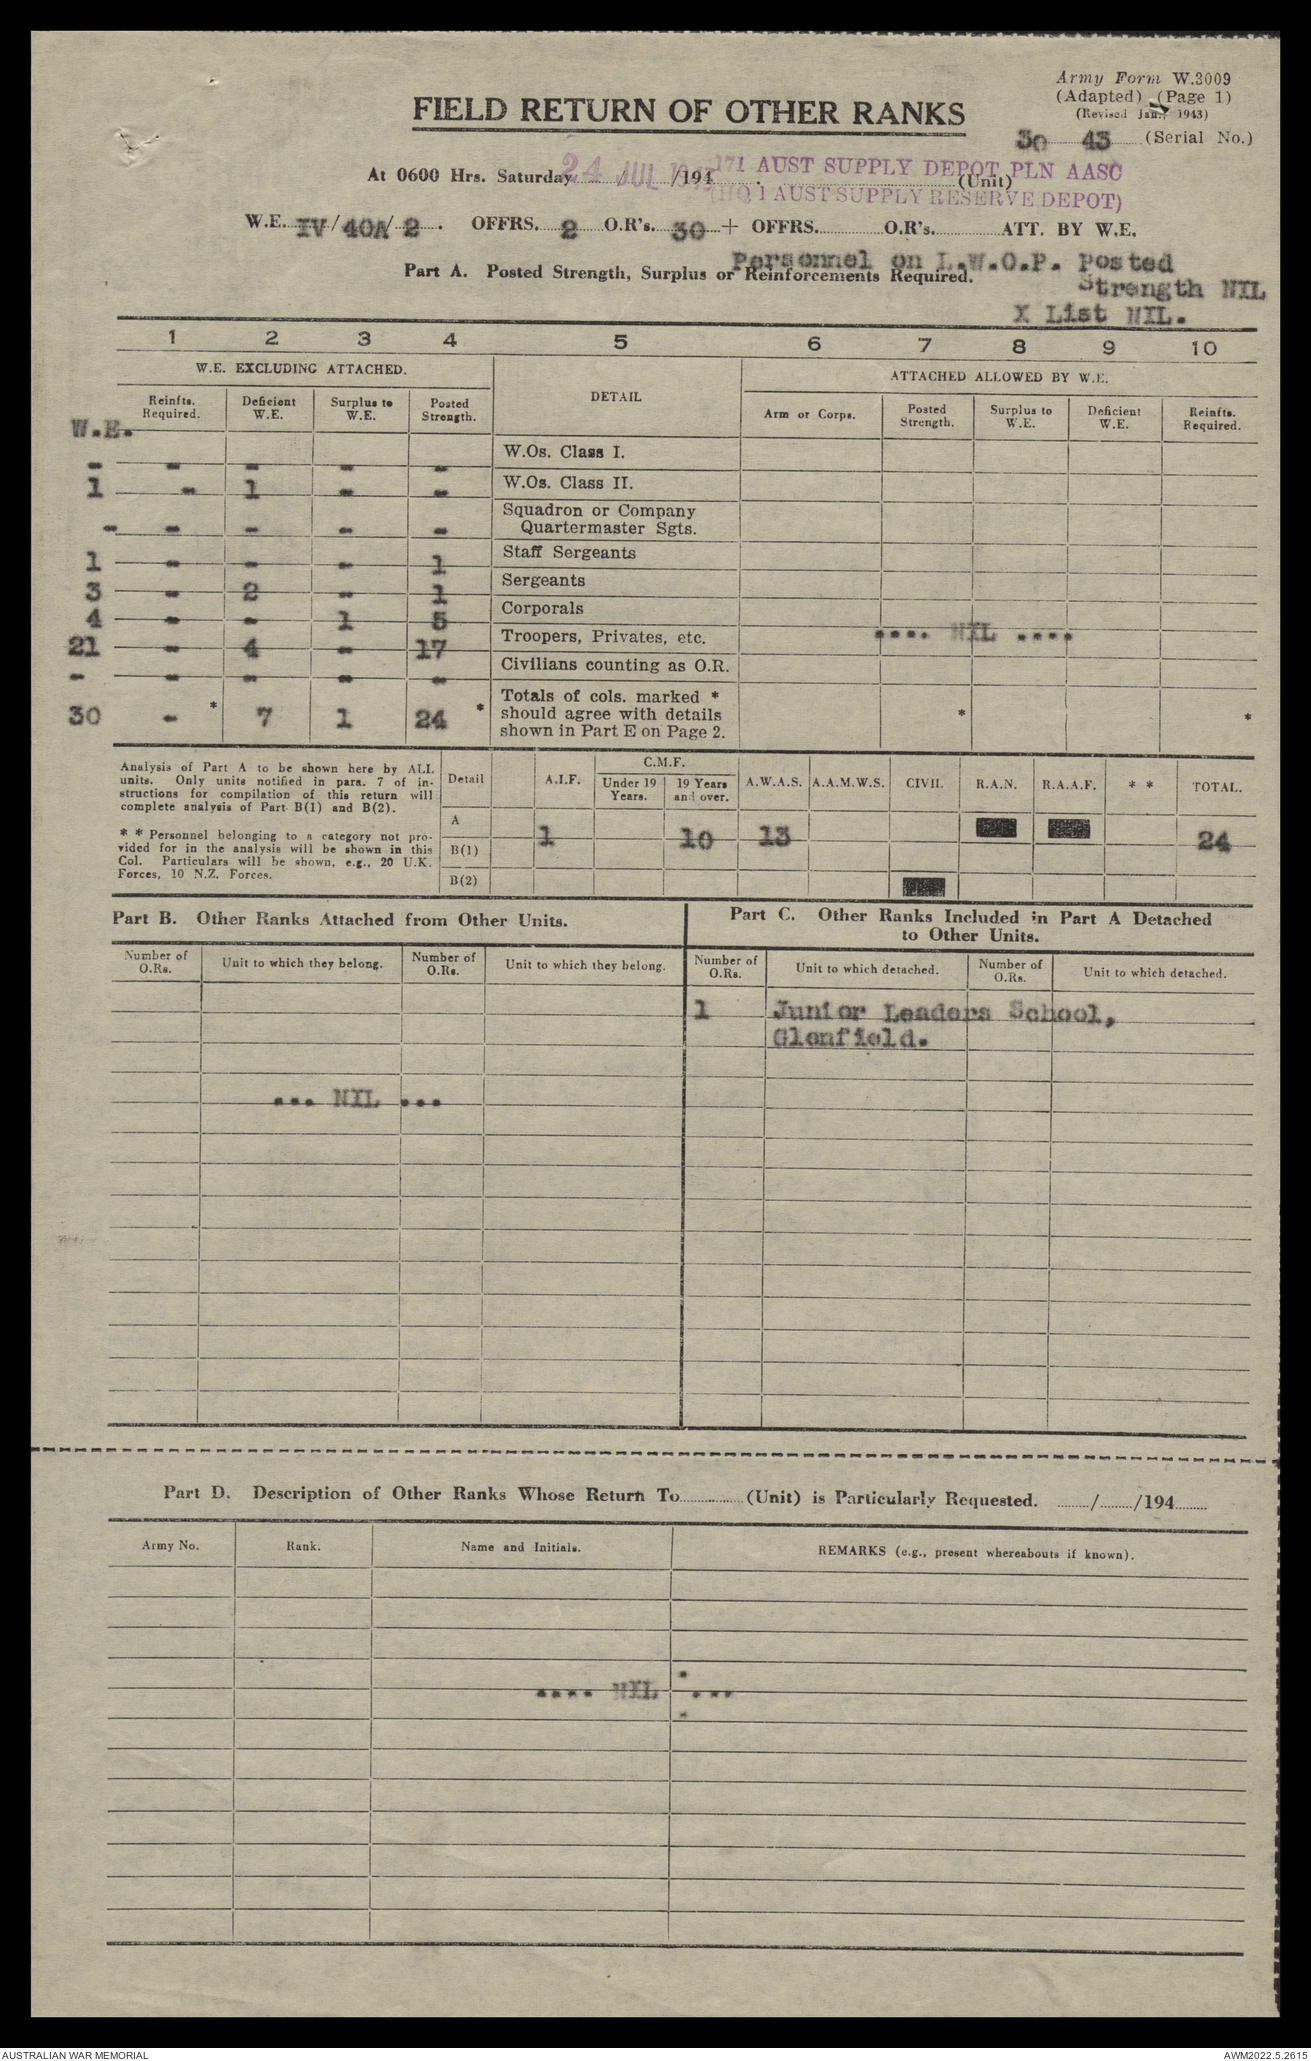 Army Form W.3009
(Adapted) (Page 1)
(Revised Jan., 1943)
FIELD RETURN OF OTHER RANKS
30 43 (Serial No.)
At 0600 Hrs. Saturday 24 JUL 1943 /194 171 AUST SUPPLY DEPOT PLN AASC (Unit)
(HQ 1 AUST SUPPLY RESERVE DEPOT)
W.E. IV / 40A / 2 . OFFRS. 2 O.R's. 30 + OFFRS. O.R's. ATT. BY W.E.
Part A. Posted Strength, Surplus or Reinforcements Required.
Personnel on L.W.O.P. Posted
Strength NIL
X List NIL.
1 2 3 4 5 6 7 8 9 10
W.E. EXCLUDING ATTACHED. DETAIL ATTACHED ALLOWED BY W.E.
Reinfts. Required. Deficient W.E. Surplus to W.E. Posted Strength. Arm or Corps. Posted Strength. Surplus to W.E. Deficient W.E. Reinfts. Required.
W.E.
- - - - - W.Os. Class I.
1 - 1 - - W.Os. Class II.
- - - - - Squadron or Company Quartermaster Sgts.
1 - - - 1 Staff Sergeants
3 - 2 - 1 Sergeants
4 - - 1 5 Corporals
21 - 4 - 17 Troopers, Privates, etc. .... NIL ....
- - - - - Civilians counting as O.R.
30 - * 7 1 24 * Totals of cols. marked * should agree with details shown in Part E on Page 2. * *
Analysis of Part A to be shown here by ALL
units. Only units notified in para. 7 of in-
structions for compilation of this return will
complete analysis of Part B(1) and B(2).
* * Personnel belonging to a category not pro-
vided for in the analysis will be shown in this
Col. Particulars will be shown, e.g., 20 U.K.
Forces, 10 N.Z. Forces.
C.M.F.
Detail A.I.F. Under 19 Years. 19 Years and over. A.W.A.S. A.A.M.W.S. CIVIL R.A.N. R.A.A.F. * * TOTAL.
A 1 10 13 24
B(1)
B(2)
Part B. Other Ranks Attached from Other Units.
Number of O.Rs. Unit to which they belong. Number of O.Rs. Unit to which they belong.
... NIL ...
Part C. Other Ranks Included in Part A Detached
to Other Units.
Number of O.Rs. Unit to which detached. Number of O.Rs. Unit to which detached.
1 Junior Leaders School,
Glenfield.
Part D. Description of Other Ranks Whose Return To (Unit) is Particularly Requested. / /194
Army No. Rank. Name and Initials. REMARKS (e.g., present whereabouts if known).
.... NIL ....
AUSTRALIAN WAR MEMORIAL AWM2022.5.2615